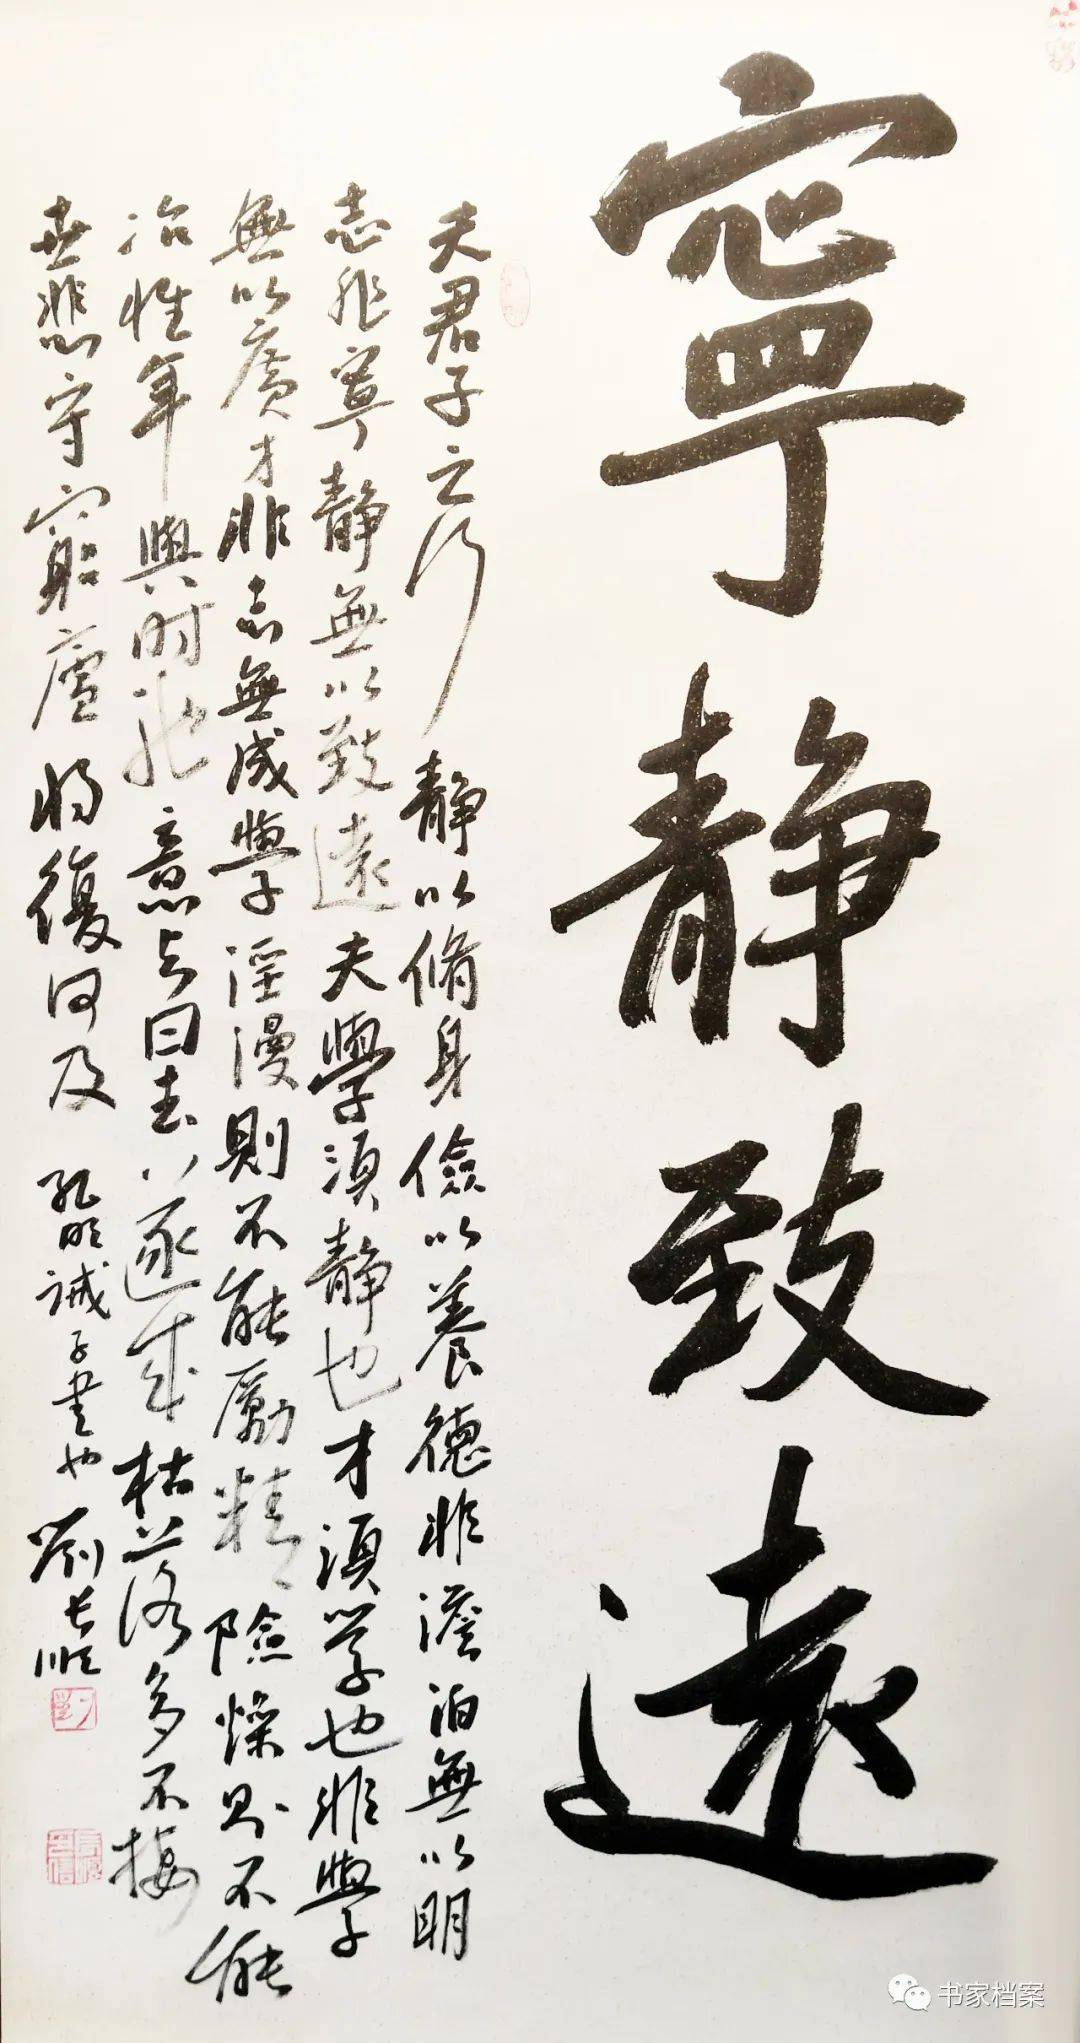 寧静致遠
夫君子之行静以脩身儉以養德非澹泊無以明
志非寧静無以致遠夫學須静也才須学也非學
無以廣才非志無成學淫漫則不能勵精險燥则不能
冶性年與时馳意与日去遂成枯落多不接
世悲守窮廬将復何及 孔明誡子書也 劉长顺
书家档案